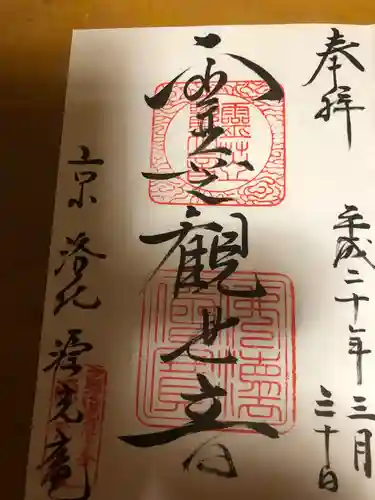 奉拝
平成二十年三月三十日
霊芝観世音
京洛北源光庵